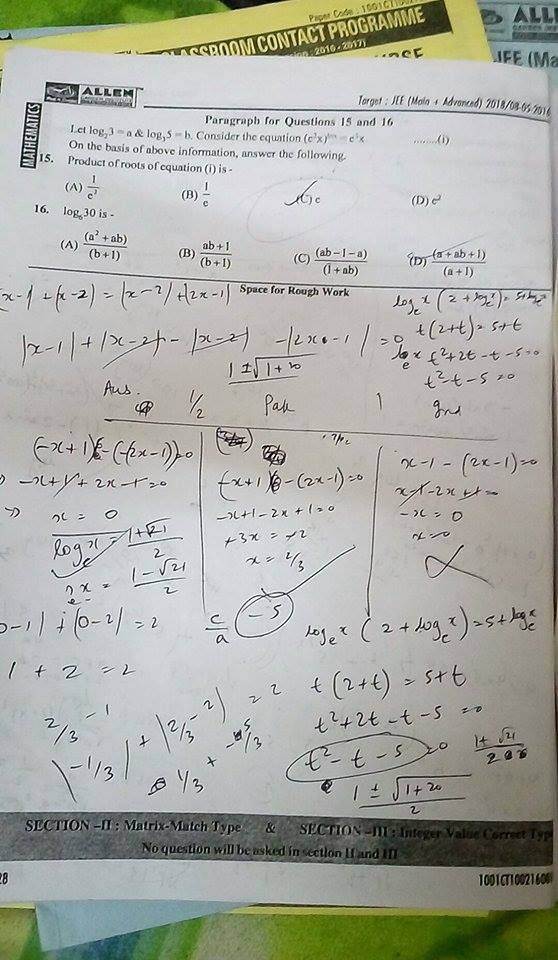 Paper Code : 1001CT1002
CLASSROOM CONTACT PROGRAMME
2016 - 2017)
ALLEN
JEE (Ma
ALLEN
Target : JEE (Main + Advanced) 2018/08-05-2016
MATHEMATICS
Paragraph for Questions 15 and 16
Let log₂3 = a & log₃5 = b. Consider the equation (e²x)^lnx = e⁵x ........(i)
On the basis of above information, answer the following.
15. Product of roots of equation (i) is -
(A) 1/e² (B) 1/e (C) e (D) e²
16. log₆30 is -
(A) (a² + ab)/(b+1) (B) (ab+1)/(b+1) (C) (ab-1-a)/(1+ab) (D) (a+ab+1)/(a+1)
Space for Rough Work
x-1 + |x-2| = |x-2| + |2x-1|
logₑx (2 + logₑx) = 5 + logₑx
|x-1| + |x-2| - |x-2| - |2x-1| = 0
t(2+t) = 5+t
t²+2t-t-5=0
1±√1+20
t²-t-5=0
Ans. 1/2 1
(-x+1) -(-(2x-1))=0
-x+1+2x-1=0
x = 0
logₑx = (1+√21)/2
x = (1-√21)/2
(-x+1) -(2x-1)=0
-x+1-2x+1=0
+3x = +2
x = 2/3
x-1-(2x-1)=0
x-1-2x+1=0
-x = 0
x=0
0-1| + |0-2| = 2
c/a -5
logₑx (2 + logₑx) = 5 + logₑx
1 + 2 = 2
t(2+t) = 5+t
2/3 -1
|2/3 -2| = 2
t²+2t-t-5=0
|-1/3| +
1/3 +
t²-t-5=0
1+√21
(1±√1+20)/2
SECTION –II : Matrix-Match Type & SECTION –III : Integer Value Correct Type
No question will be asked in section II and III
28
1001CT10021600